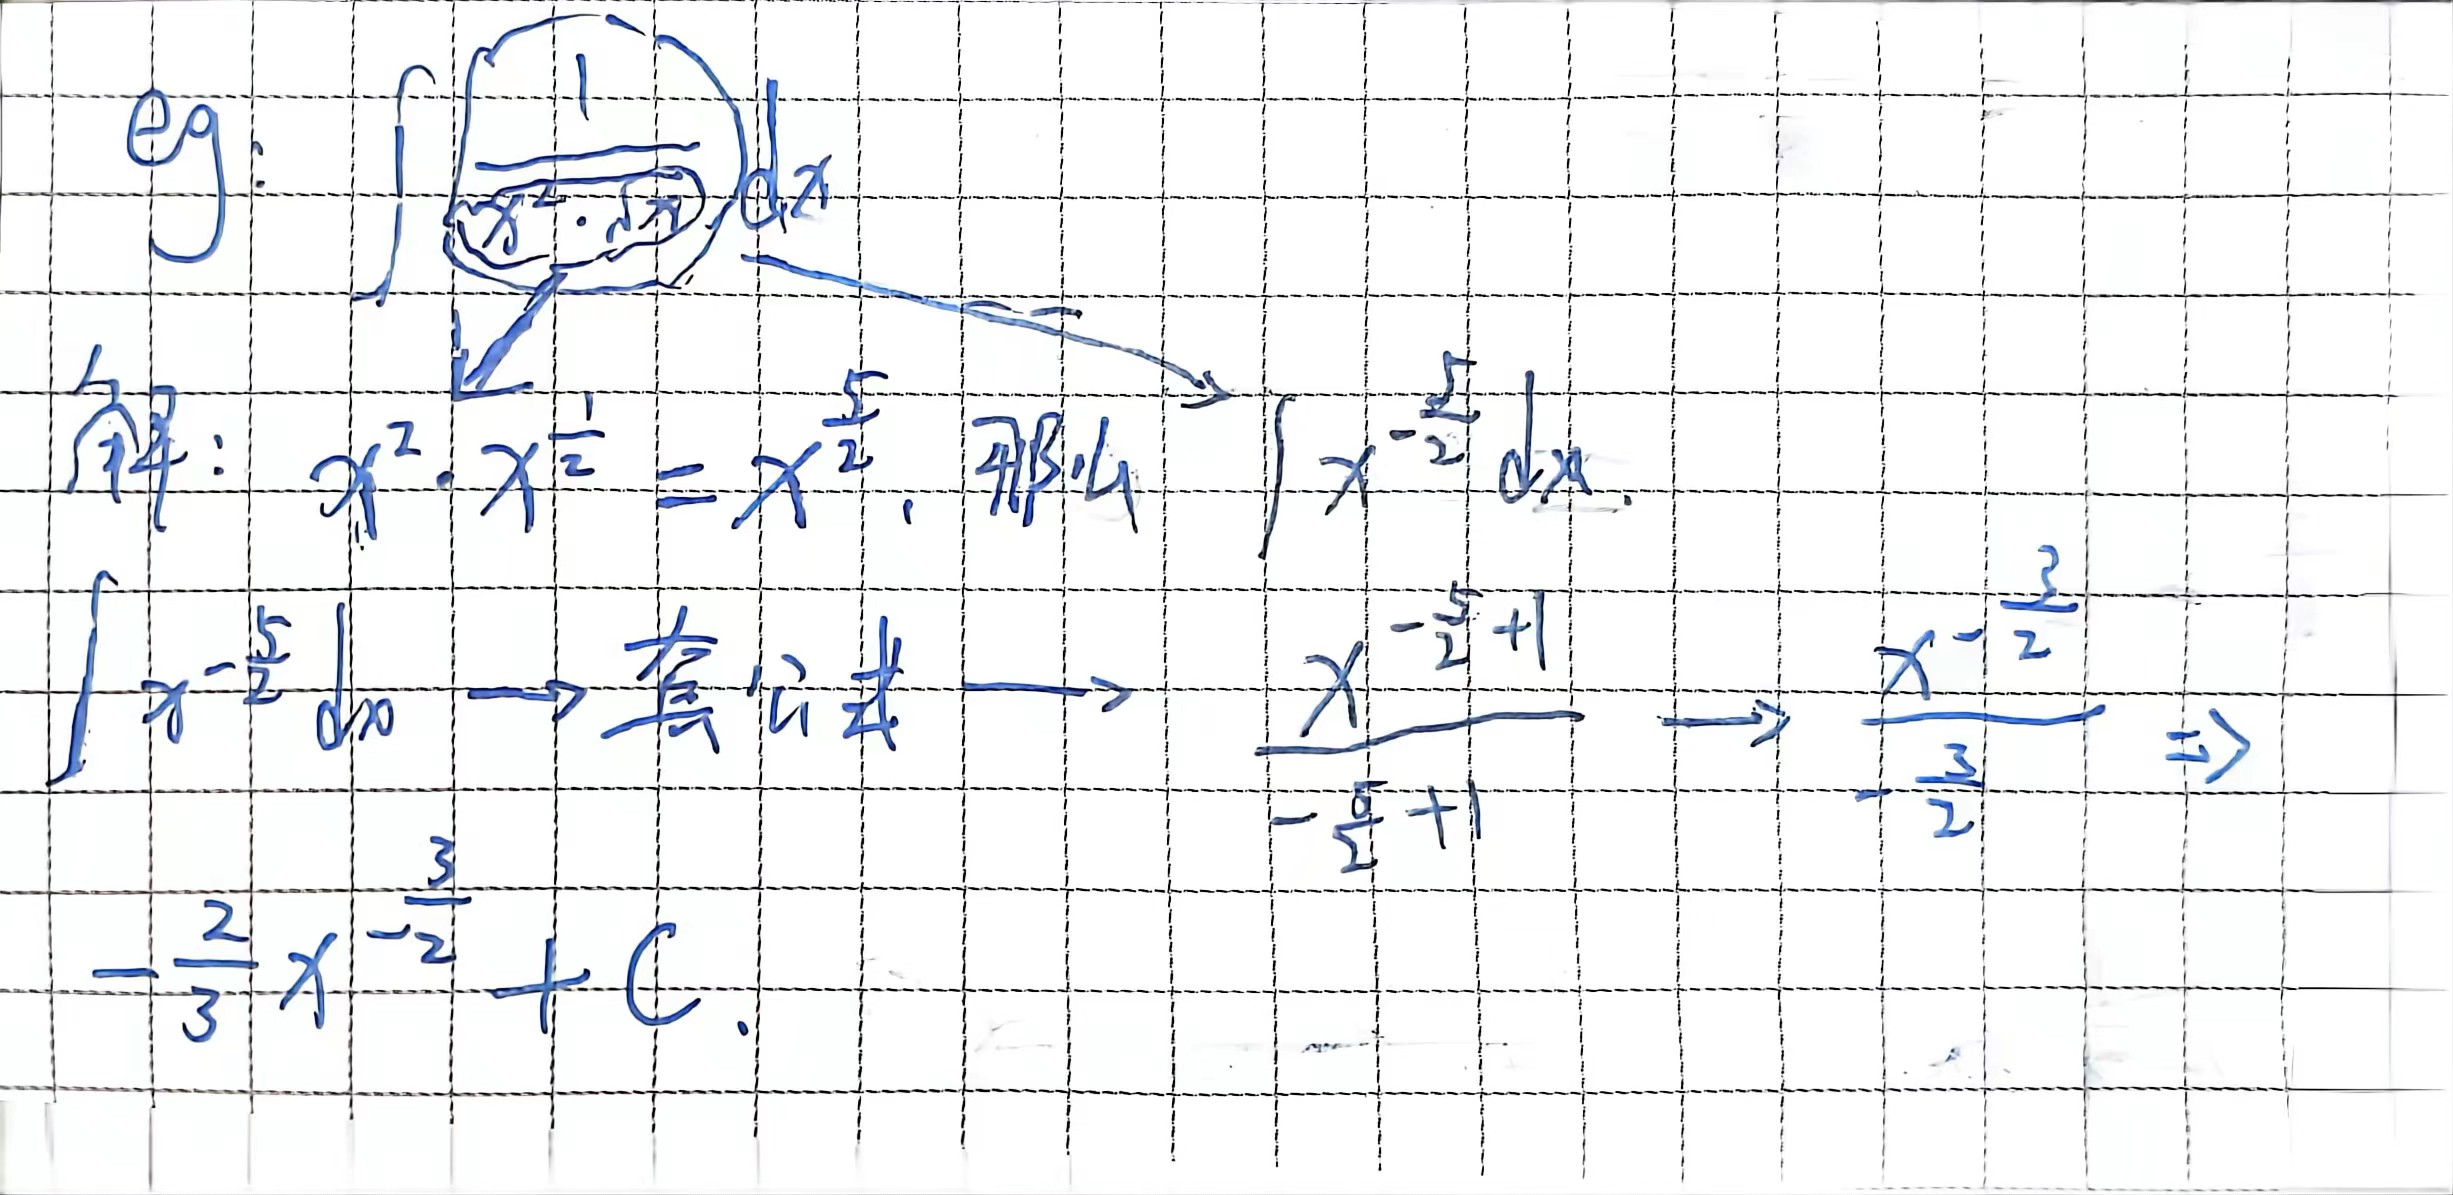 eg: ∫ 1/(x²·√x) dx
解: x²·x^(1/2) = x^(5/2), 那么 ∫ x^(-5/2) dx.
∫ x^(-5/2) dx → 套公式 → x^(-5/2+1)/(-5/2+1) → x^(-3/2)/(-3/2) ⇒
-2/3 x^(-3/2) + C.